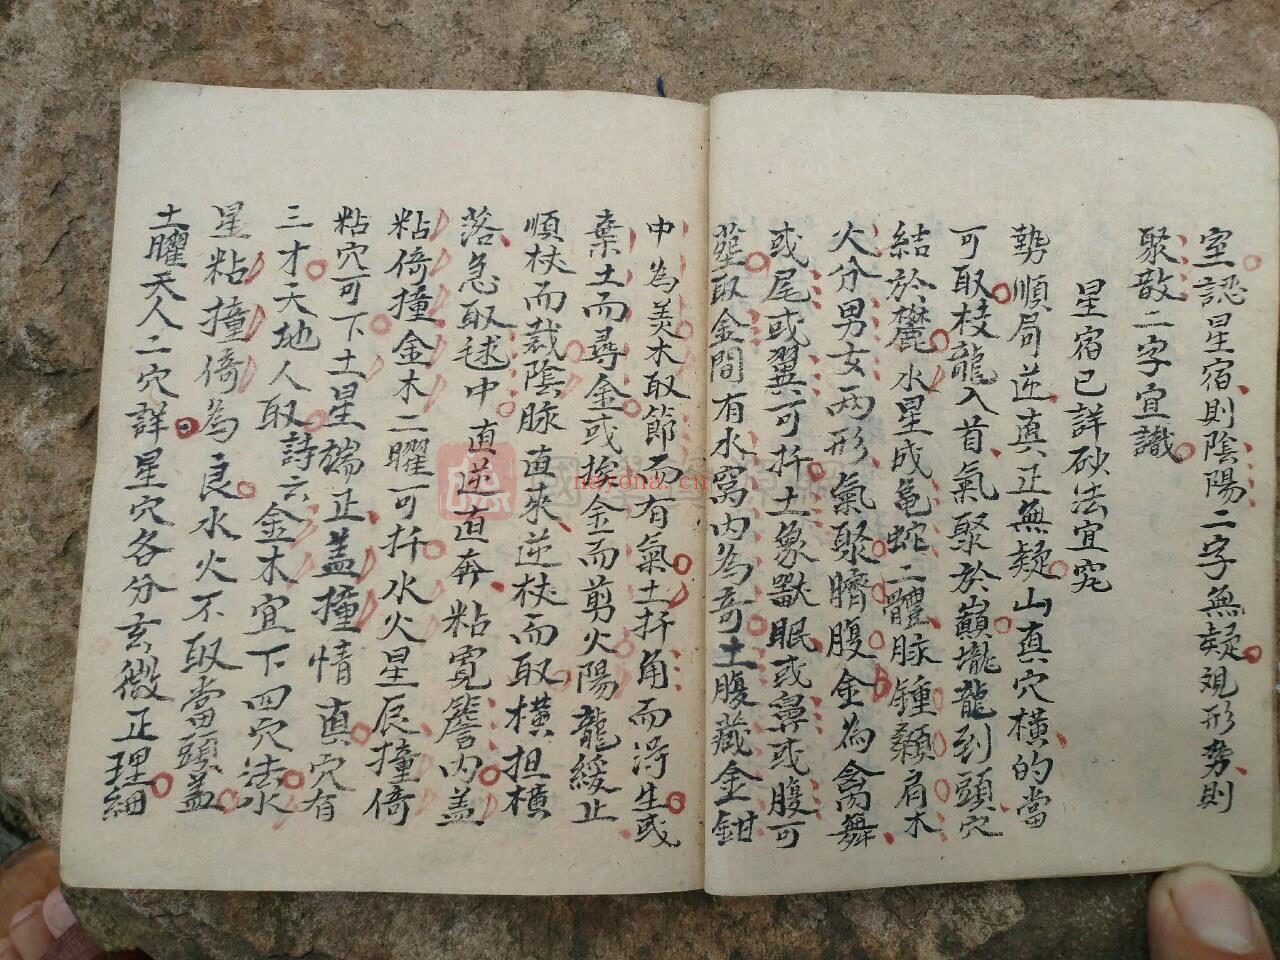 室認星宿則陰陽二字無疑覌形势則
聚散二字宜識
星宿已詳砂法宜究
勢順局逆真正無疑山真穴橫的當
可取枝龍入首氣聚於巔壠龍到頭穴
結於麓水星成龟蛇二體脉鍾顙肩木
火分男女两形氣聚臍腹金為禽舞
或尾或翼可扦土象獸眠或鼻或腹可
塟取金間有水窩内為奇土腹藏金鉗
中為美木取節而有氣土扦角而浔生或
棄土而尋金或挨金而剪火陽龍緩止
順杖而裁陰脉直來逆杖而取橫担橫
落急取毬中直逆直奔粘寬簷内盖
粘倚撞金木二曜可扦水火星辰撞倚
粘穴可下土星端正盖撞情真穴有
三才天地人取詩云金木宜下四穴法水
星粘撞倚為良水火不取當頭盖
土曜天人二穴詳星穴各分玄微正理細
nayona.cn